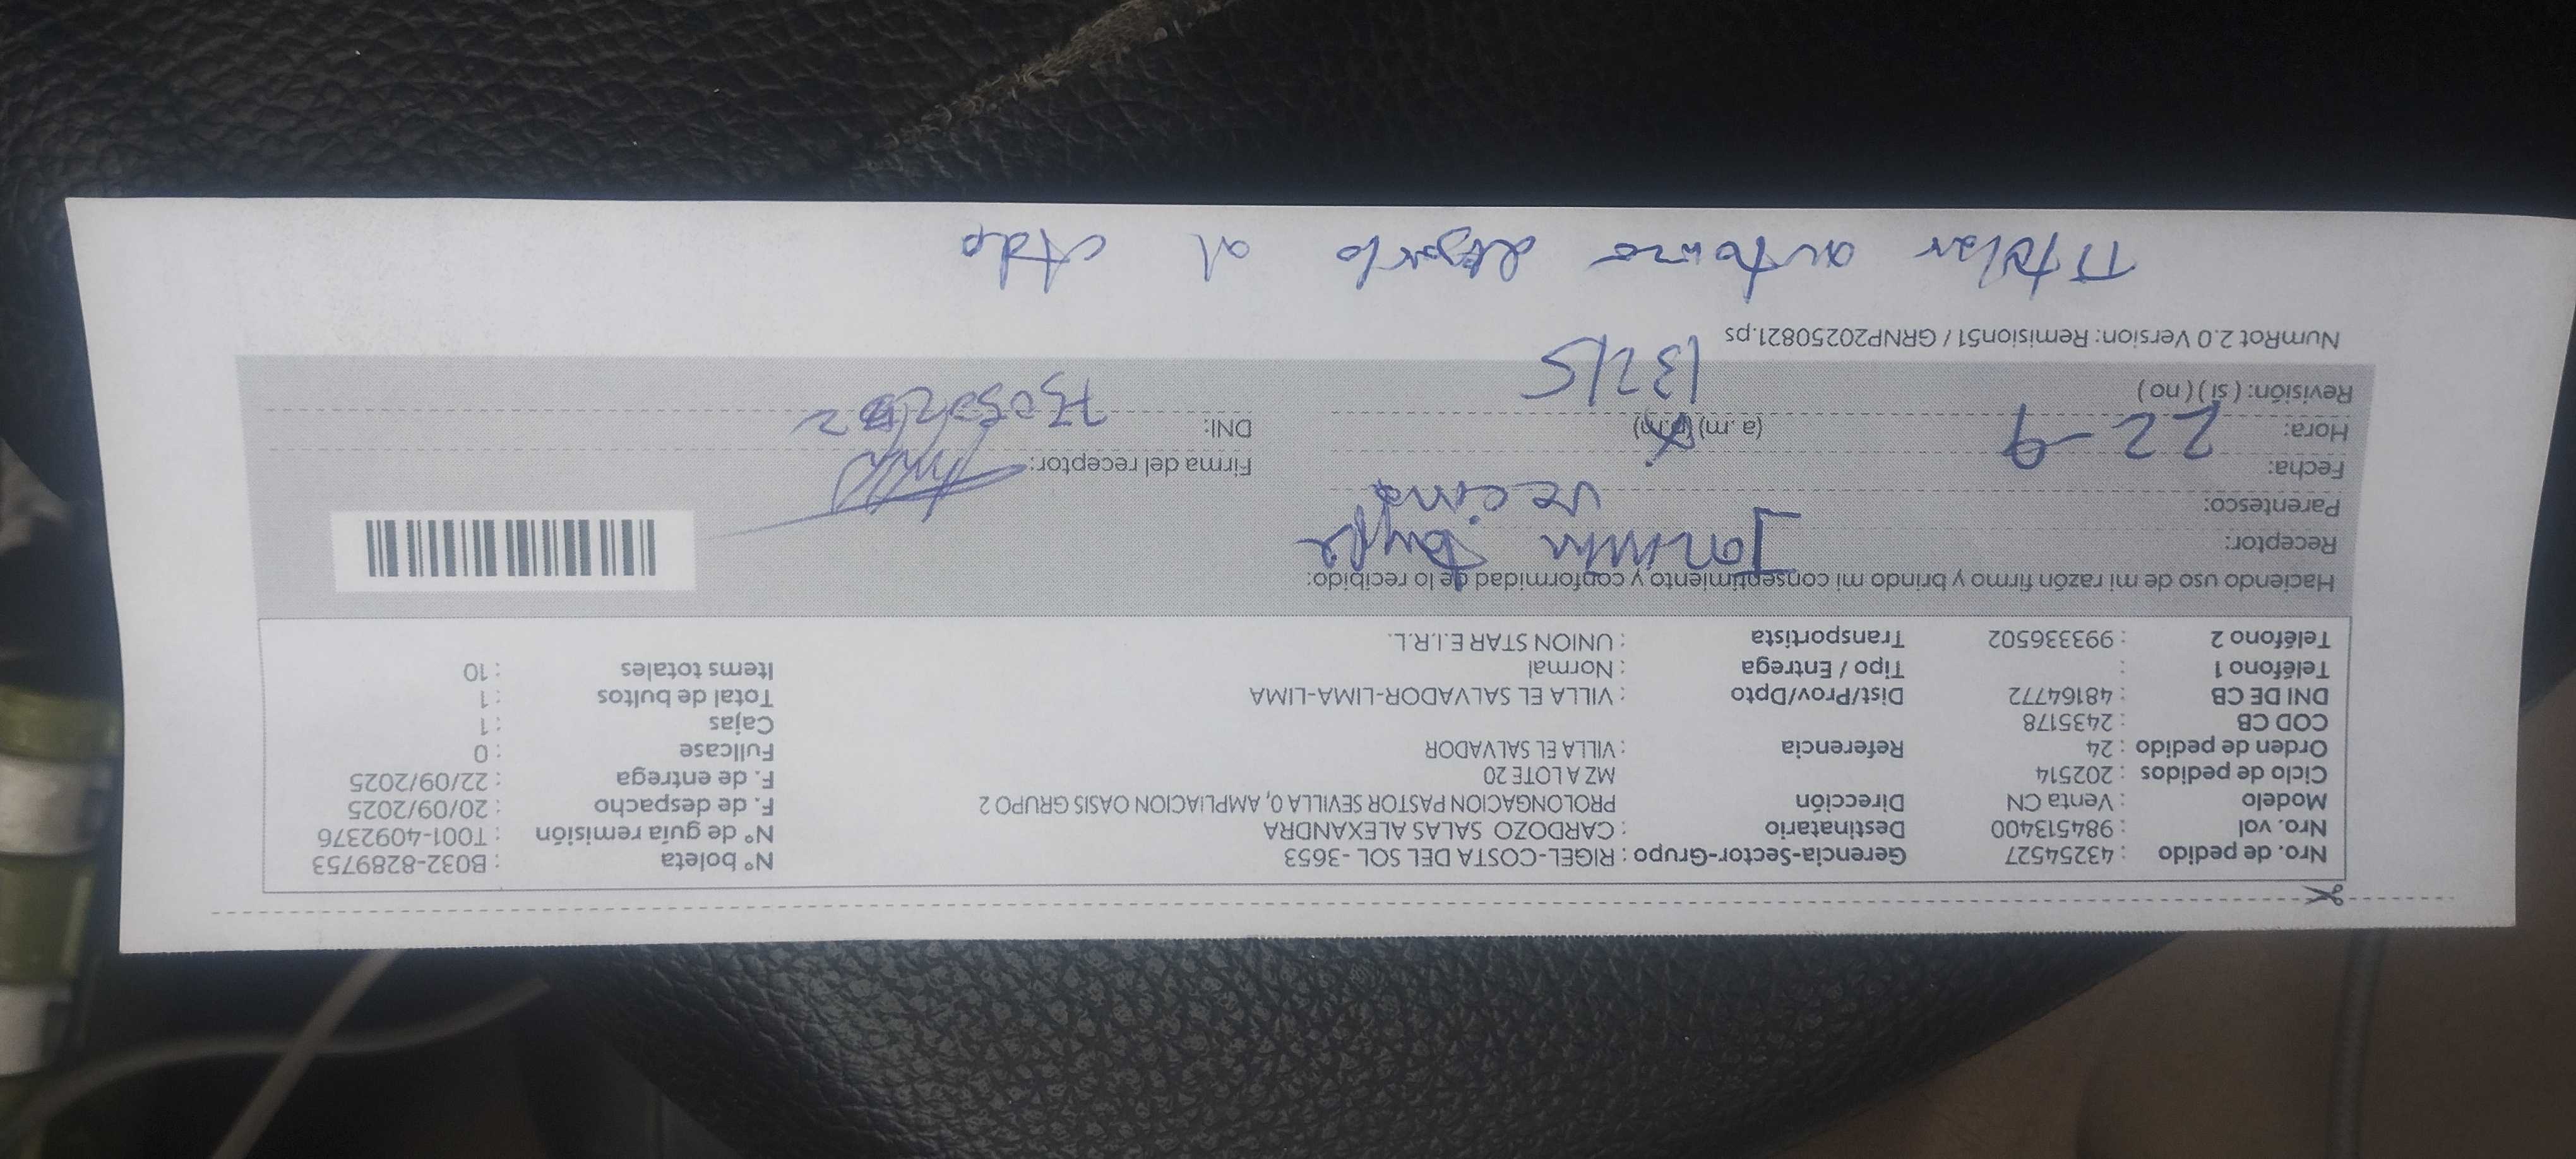 Nro. de pedido : 43254527 Gerencia-Sector-Grupo : RIGEL-COSTA DEL SOL -3653 N° boleta : B032-8289753
Nro. vol : 984513400 Destinatario : CARDOZO SALAS ALEXANDRA N° de guía remisión : T001-4092376
Modelo : Venta CN Dirección PROLONGACION PASTOR SEVILLA 0, AMPLIACION OASIS GRUPO 2 F. de despacho : 20/09/2025
Ciclo de pedidos : 202514 MZ A LOTE 20 F. de entrega : 22/09/2025
Orden de pedido : 24 Referencia : VILLA EL SALVADOR Fullcase : 0
COD CB : 2435178 Cajas : 1
DNI DE CB : 48164772 Dist/Prov/Dpto : VILLA EL SALVADOR-LIMA-LIMA Total de bultos : 1
Teléfono 1 : Tipo / Entrega : Normal Items totales : 10
Teléfono 2 : 993336502 Transportista : UNION STAR E.I.R.L.
Haciendo uso de mi razón firmo y brindo mi consentimiento y conformidad de lo recibido:
Receptor:
Parentesco: vecina
Fecha: 22-9 Firma del receptor:
Hora: (a.m) (p.m) DNI:
Revisión: ( si ) ( no )
NumRot 2.0 Version: Remision51 / GRNP20250821.ps
Titular autoriza dejarlo al